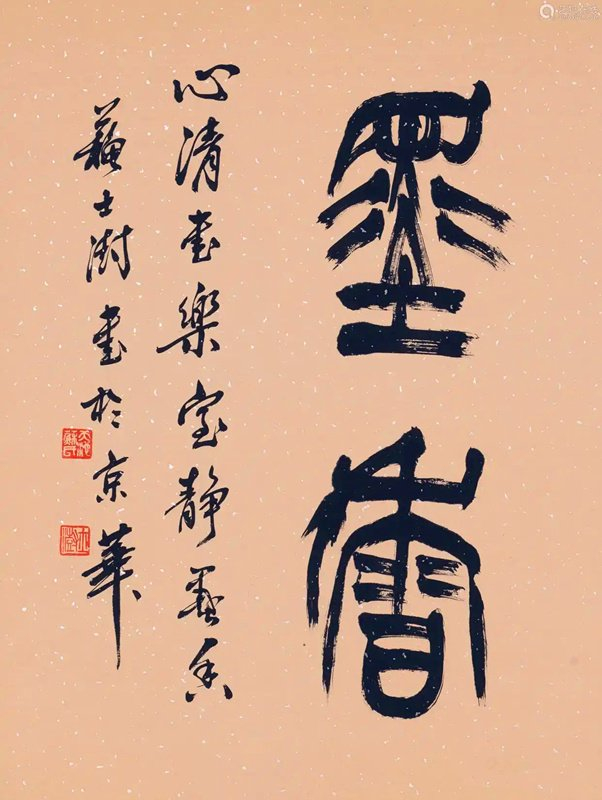 墨香
心清書樂室静墨香
蘇士澍書於京華